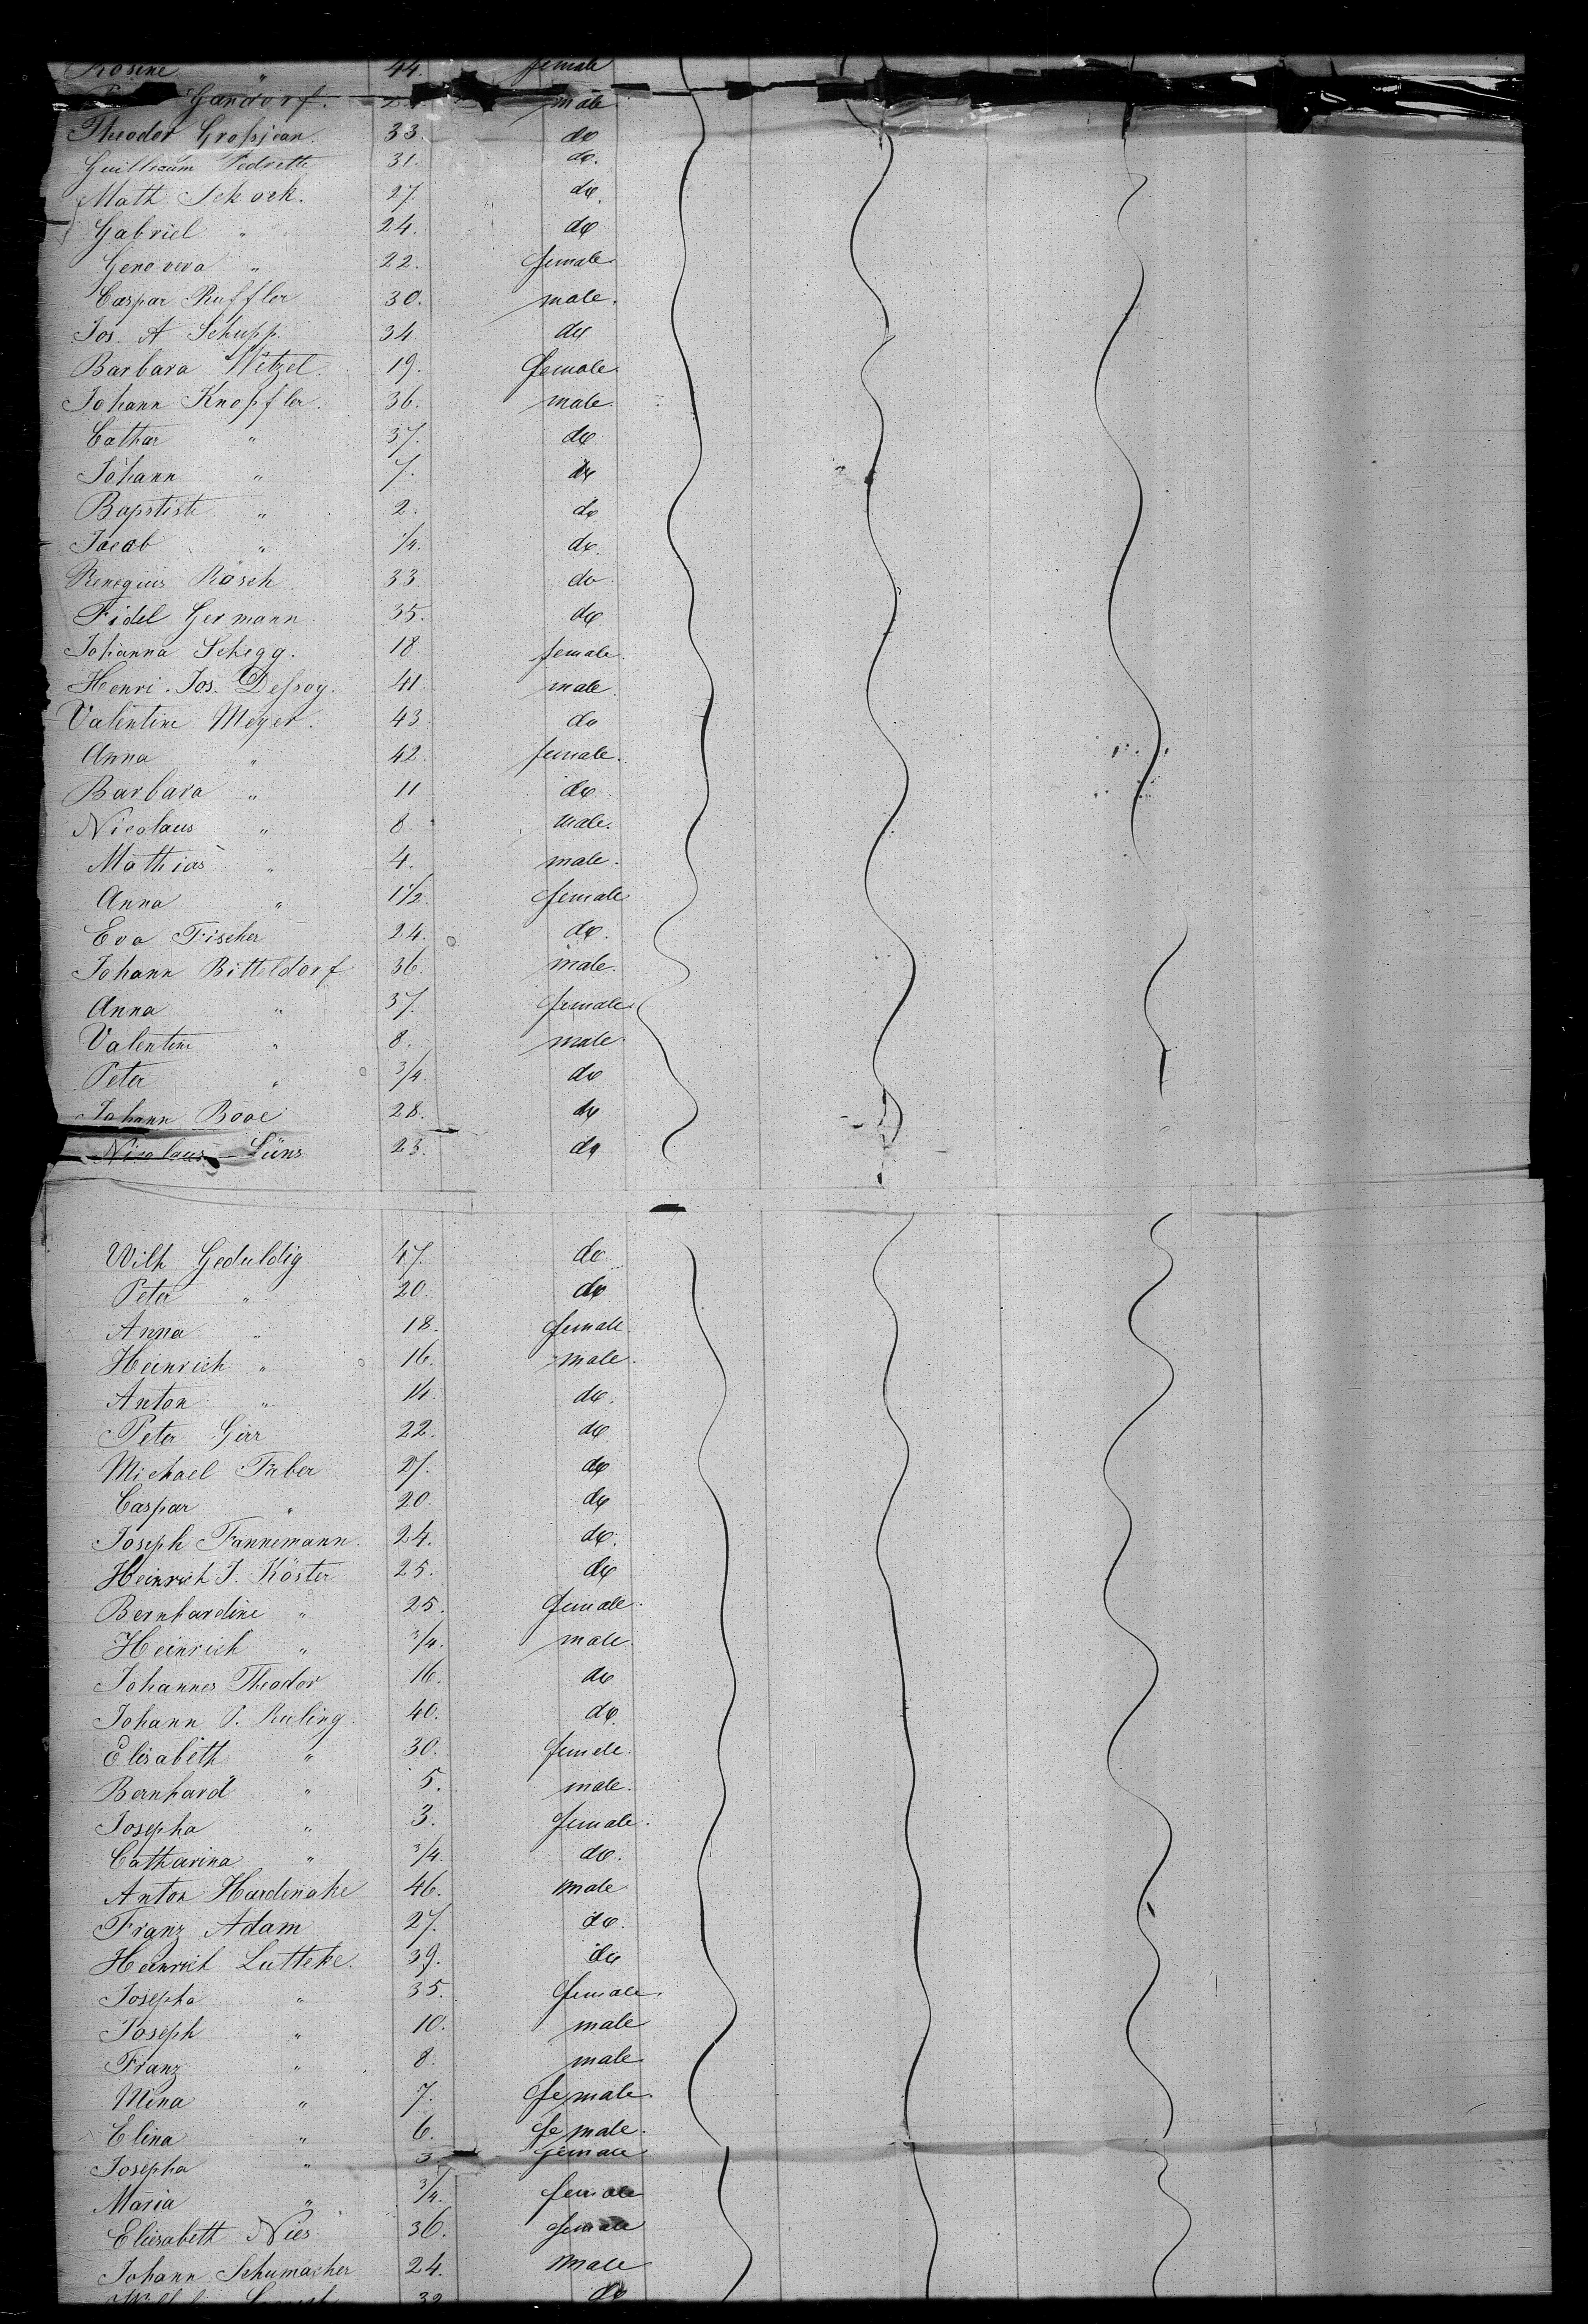 Rosine " 44. female
Gandorf. male
Theodor Großjean. 33. do
31. do.
Math Schork. 27. do.
Gabriel " 24. do
Genoveva " 22. female
Caspar Ruffler 30. male.
Jos. A Schupp. 34 do
Barbara Witzel. 19. female
Johann Knopfler. 36. male.
Cathar " 37. do
Johann " 7. do
Baptiste " 2. do
Jacob " 1/4. do.
Remegius Rösch. 33. do
Fidel Germann 35. do
Johanna Schegg. 18 female.
Henri. Jos. Deßroy. 41. male.
Valentine Meyer. 43 do
Anna " 42. female.
Barbara " 11 do
Nicolaus " 8. male.
Mathias " 4. male.
Anna " 1 1/2. female
Eva Fischer 24. do.
Johann Bitteldorf 36. male.
Anna " 37. female
Valentine " 8. male.
Peter " 3/4. do
Johann Booc 28. do
Nicolaus Süns 23. do
Wilh Geduldig 47. do
Peter " 20. do
Anna " 18. female.
Heinrich " 16. male.
Anton " 14. do.
Peter Girr 22. do
Michael Faber 27. do
Caspar " 20. do
Joseph Fannemann. 24. do.
Heinrich J. Köster 25. do
Bernhardine " 25. female.
Heinrich " 3/4. male.
Johannes Theodor 16. do
Johann P. Ruling. 40. do.
Elisabeth " 30. female.
Bernhard " 5. male.
Josepha " 3. female.
Catharina " 3/4. do.
Anton Hardinake 46. male
Franz Adam 27. do.
Heinrich Lutteke. 39. do
Josepha " 35. female.
Joseph " 10. male
Franz " 8. male
Mina " 7. female.
Elina " 6. female.
Josepha " 3 female
Maria " 3/4. female
Eliesabeth Nies 36. female
Johann Schumacher 24. male
32 do